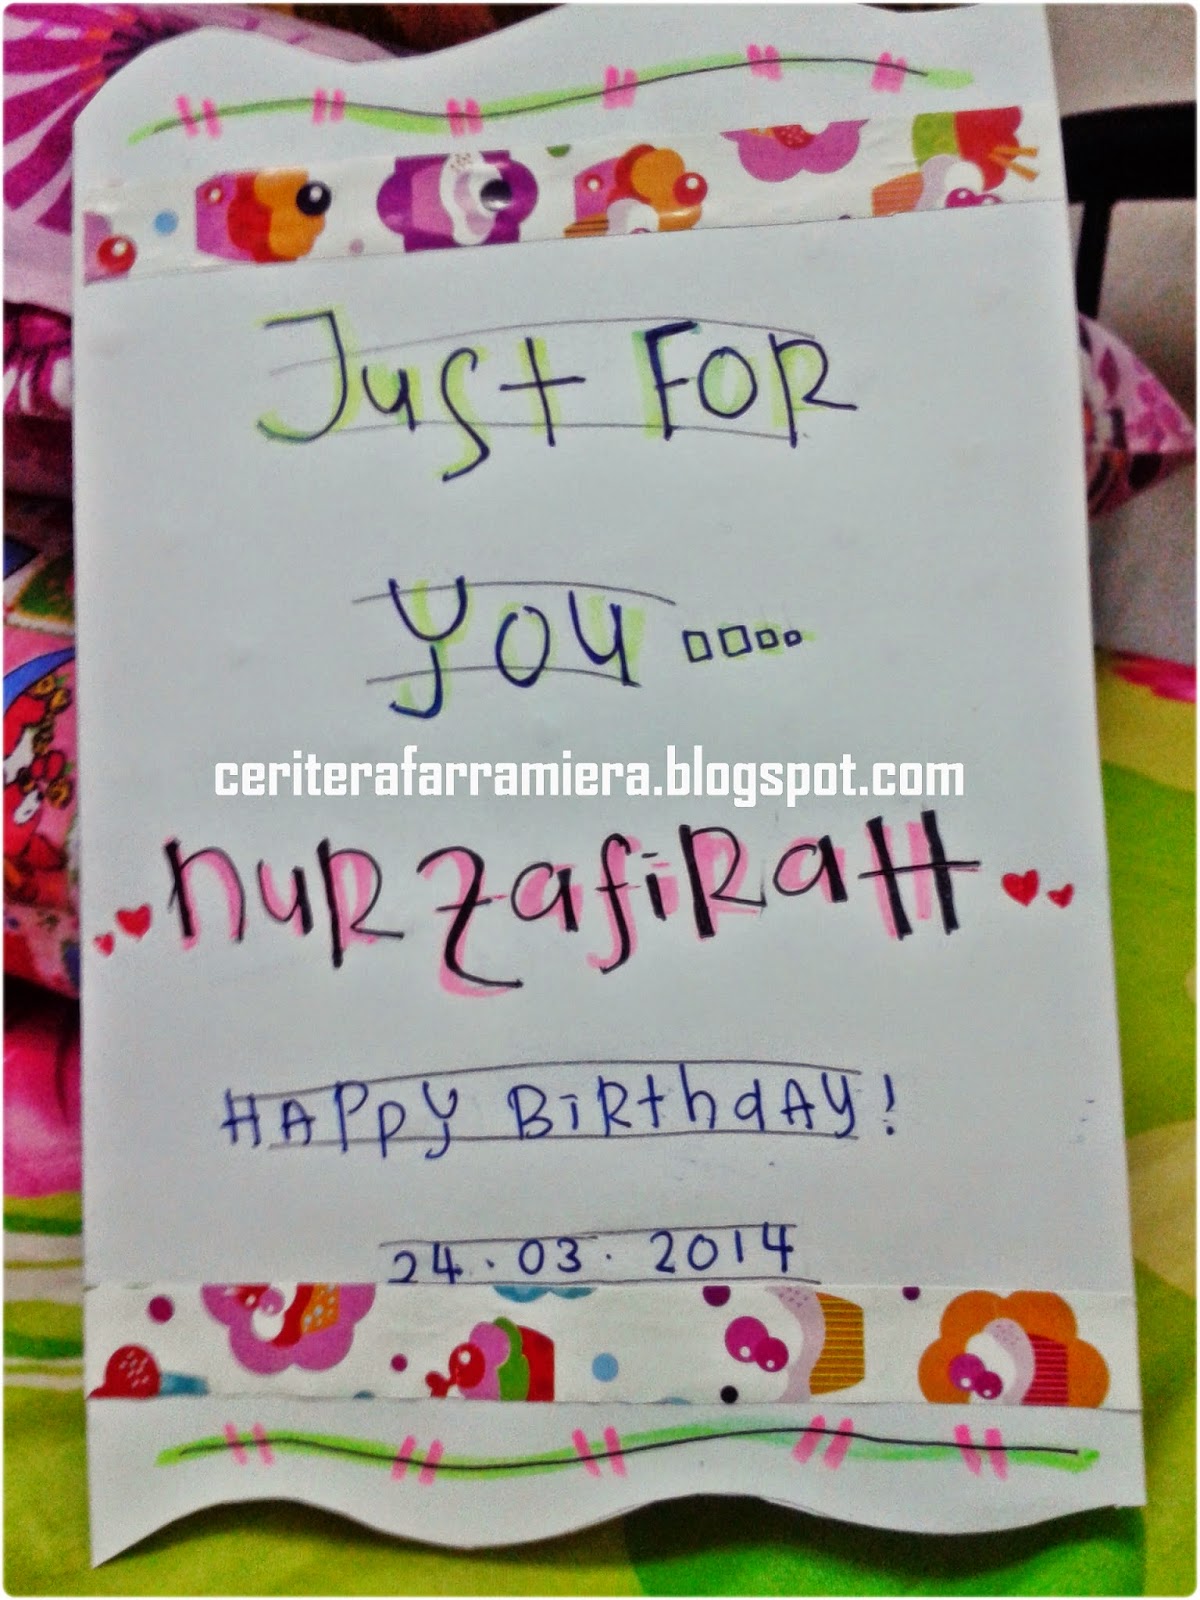 Just FOR
you....
ceriterafarramiera.blogspot.com
nuRzafiRaH
HAPpy BiRthdAy!
24.03.2014